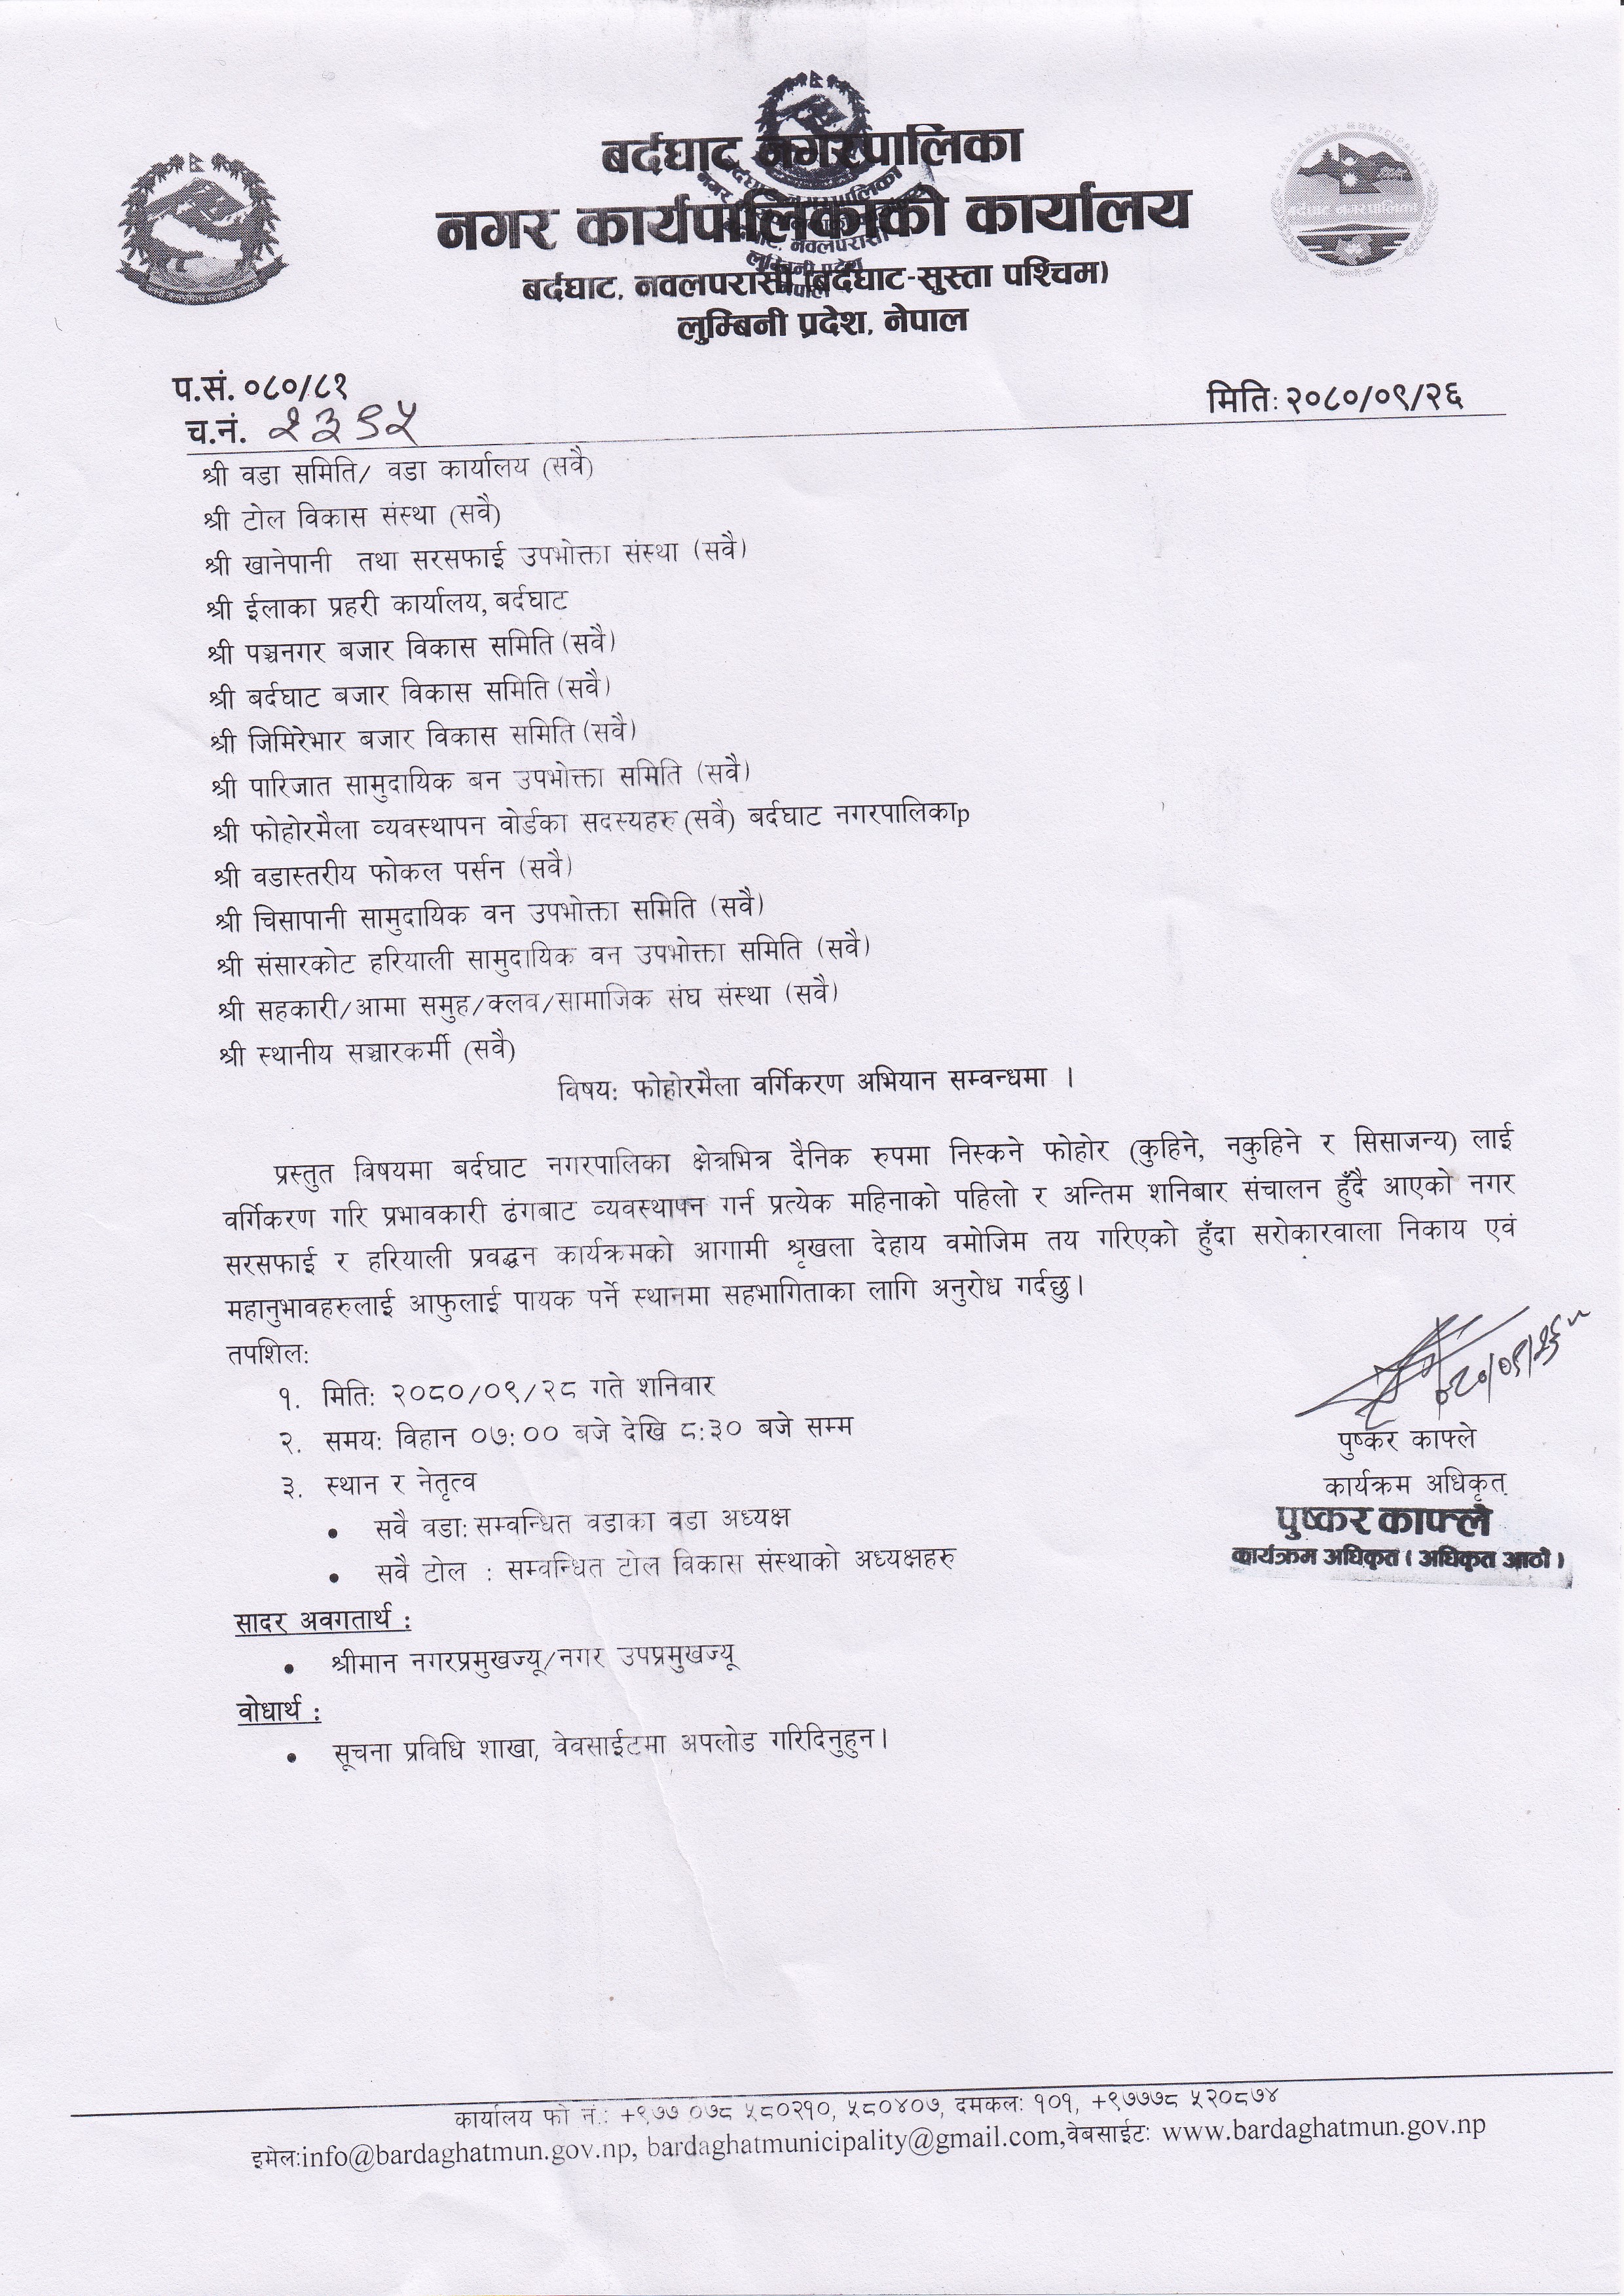 बर्दघाट नगरपालिका
नगर कार्यपालिकाको कार्यालय
बर्दघाट, नवलपरासी (बर्दघाट-सुस्ता पश्चिम)
लुम्बिनी प्रदेश, नेपाल
प.सं. ०८०/८१
मिति: २०८०/०९/२६
च.नं. २३९५
श्री वडा समिति/ वडा कार्यालय (सवै)
श्री टोल विकास संस्था (सवै)
श्री खानेपानी तथा सरसफाई उपभोक्ता संस्था (सवै)
श्री ईलाका प्रहरी कार्यालय, बर्दघाट
श्री पञ्चनगर बजार विकास समिति (सवै)
श्री बर्दघाट बजार विकास समिति (सवै)
श्री जिमिरेभार बजार विकास समिति (सवै)
श्री पारिजात सामुदायिक बन उपभोक्ता समिति (सवै)
श्री फोहोरमैला व्यवस्थापन वोर्डका सदस्यहरु (सवै) बर्दघाट नगरपालिकाp
श्री वडास्तरीय फोकल पर्सन (सवै)
श्री चिसापानी सामुदायिक वन उपभोक्ता समिति (सवै)
श्री संसारकोट हरियाली सामुदायिक वन उपभोक्ता समिति (सवै)
श्री सहकारी/आमा समुह/क्लव/सामाजिक संघ संस्था (सवै)
श्री स्थानीय सञ्चारकर्मी (सवै)
विषय: फोहोरमैला वर्गिकरण अभियान सम्वन्धमा ।
प्रस्तुत विषयमा बर्दघाट नगरपालिका क्षेत्रभित्र दैनिक रुपमा निस्कने फोहोर (कुहिने, नकुहिने र सिसाजन्य) लाई
वर्गिकरण गरि प्रभावकारी ढंगबाट व्यवस्थापन गर्न प्रत्येक महिनाको पहिलो र अन्तिम शनिबार संचालन हुँदै आएको नगर
सरसफाई र हरियाली प्रवद्धन कार्यक्रमको आगामी श्रृखला देहाय वमोजिम तय गरिएको हुँदा सरोकारवाला निकाय एवं
महानुभावहरुलाई आफुलाई पायक पर्ने स्थानमा सहभागिताका लागि अनुरोध गर्दछु।
तपशिल:
१. मिति: २०८०/०९/२८ गते शनिवार
२. समय: विहान ०७:०० बजे देखि ८:३० बजे सम्म
३. स्थान र नेतृत्व
• सवै वडा: सम्वन्धित वडाका वडा अध्यक्ष
• सवै टोल : सम्वन्धित टोल विकास संस्थाको अध्यक्षहरु
०८०/०९/२६
पुष्कर काफ्ले
कार्यक्रम अधिकृत
पुष्कर काफ्ले
कार्यक्रम अधिकृत ( अधिकृत आठौं )
सादर अवगतार्थ :
• श्रीमान नगरप्रमुखज्यू/नगर उपप्रमुखज्यू
वोधार्थ :
• सूचना प्रविधि शाखा, वेवसाईटमा अपलोड गरिदिनुहुन।
कार्यालय फो नं.: +९७७ ०७८ ५८०२१०, ५८०४०७, दमकल: १०१, +९७७७८ ५२०८७४
इमेल:info@bardaghatmun.gov.np, bardaghatmunicipality@gmail.com,वेबसाईट: www.bardaghatmun.gov.np